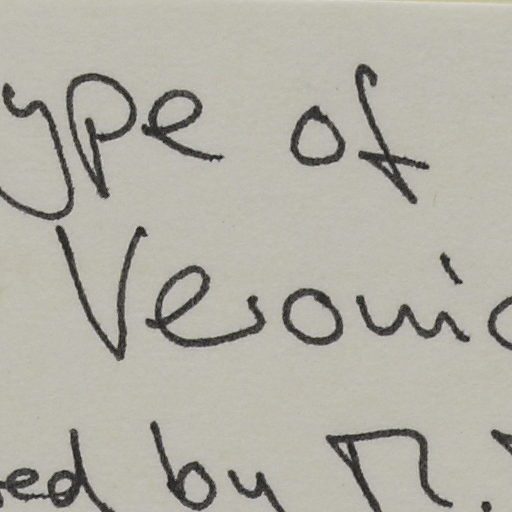 ype of
Veronic
ed by M.